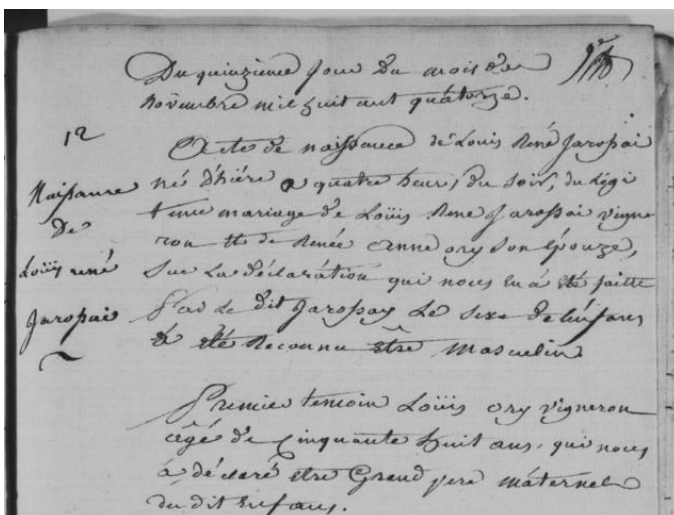 Du quinzieme jour du mois de
novembre mil huit cent quatorze.
12
Naissance
De
Loüis rené
Jarossai
Acte de naissance de Louis René Jarossai
né d'hiére a quatre heures du soir, du légi
time mariage de Loüis Rene Jarossai vigne
ron et de Renée anne ory son épouze,
sur la déclaration qui nous en á été faitte
Par le dit Jarossay Le sexe de l'enfans
á été Reconnu être masculin
Premier temoin Loüis ory vigneron
âgé de Cinquante huit ans, qui nous
á déclaré etre Grand pere máternel
du dit Enfans.